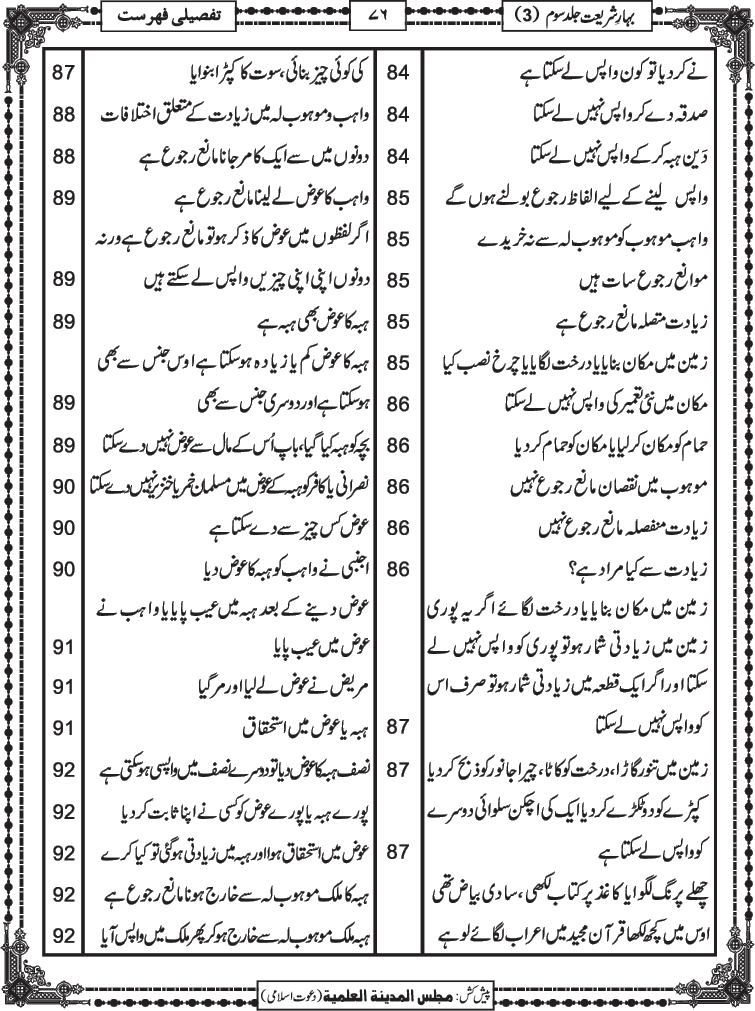 بہارِ شریعت جلد سوم (3)
۷۶
تفصیلی فہرست
نے کردیا تو کون واپس لے سکتا ہے 84
صدقہ دے کر واپس نہیں لے سکتا 84
دَین ہبہ کرکے واپس نہیں لے سکتا 84
واپس لینے کے لیے الفاظ رجوع بولنے ہوں گے 85
واہب موہوب کو موہوب لہ سے نہ خریدے 85
موانع رجوع سات ہیں 85
زیادت متصلہ مانع رجوع ہے 85
زمین میں مکان بنایا یا درخت لگایا یا چرخ نصب کیا 85
مکان میں نئی تعمیر کی واپس نہیں لے سکتا 86
حمام کو مکان کرلیا یا مکان کو حمام کردیا 86
موہوب میں نقصان مانع رجوع نہیں 86
زیادت منفصلہ مانع رجوع نہیں 86
زیادت سے کیا مراد ہے؟ 86
زمین میں مکان بنایا یا درخت لگائے اگر یہ پوری
زمین میں زیادتی شمار ہو تو پوری کو واپس نہیں لے
سکتا اور اگر ایک قطعہ میں زیادتی شمار ہو تو صرف اس
کو واپس نہیں لے سکتا 87
زمین میں تنور گاڑا، درخت کو کاٹا، چیرا جانور کو ذبح کردیا 87
کپڑے کو دو ٹکڑے کردیا ایک کی اچکن سلوائی دوسرے
کو واپس لے سکتا ہے 87
چھلے پر نگ لگوایا کاغذ پر کتاب لکھی، سادی بیاض تھی
اوس میں کچھ لکھا قرآن مجید میں اعراب لگائے لوہے
کی کوئی چیز بنائی، سوت کا کپڑا بنوایا 87
واہب و موہوب لہ میں زیادت کے متعلق اختلافات 88
دونوں میں سے ایک کا مرجانا مانع رجوع ہے 88
واہب کا عوض لے لینا مانع رجوع ہے 89
اگر لفظوں میں عوض کا ذکر ہو تو مانع رجوع ہے ورنہ
دونوں اپنی اپنی چیزیں واپس لے سکتے ہیں 89
ہبہ کا عوض بھی ہبہ ہے 89
ہبہ کا عوض کم یا زیادہ ہوسکتا ہے اوس جنس سے بھی
ہوسکتا ہے اور دوسری جنس سے بھی 89
بچہ کو ہبہ کیا گیا، باپ اُس کے مال سے عوض نہیں دے سکتا 89
نصرانی یا کافر کو ہبہ کے عوض میں مسلمان خمر یا خنزیر نہیں دے سکتا 90
عوض کس چیز سے دے سکتا ہے 90
اجنبی نے واہب کو ہبہ کا عوض دیا 90
عوض دینے کے بعد ہبہ میں عیب پایا یا واہب نے
عوض میں عیب پایا 91
مریض نے عوض لے لیا اور مرگیا 91
ہبہ یا عوض میں استحقاق 91
نصف ہبہ کا عوض دیا تو دوسرے نصف میں واپسی ہوسکتی ہے 92
پورے ہبہ یا پورے عوض کو کسی نے اپنا ثابت کردیا 92
عوض میں استحقاق ہوا اور ہبہ میں زیادتی ہوگئی تو کیا کرے 92
ہبہ کا ملک موہوب لہ سے خارج ہونا مانع رجوع ہے 92
ہبہ ملک موہوب لہ سے خارج ہوکر پھر ملک میں واپس آیا 92
پیش کش: مجلس المدینۃ العلمیۃ (دعوت اسلامی)